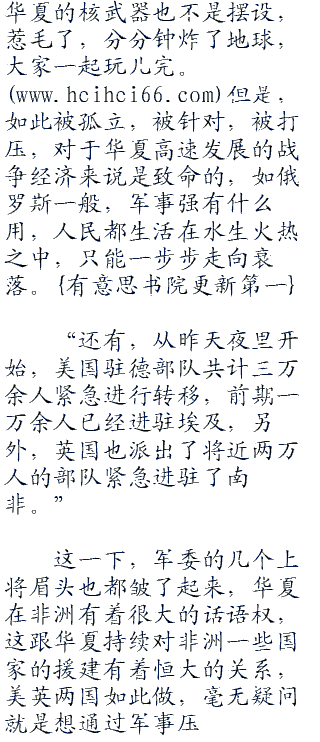 华夏的核武器也不是摆设，
惹毛了，分分钟炸了地球，
大家一起玩儿完。
(www.hcihci66.com)但是，
如此被孤立，被针对，被打
压，对于华夏高速发展的战
争经济来说是致命的，如俄
罗斯一般，军事强有什么
用，人民都生活在水生火热
之中，只能一步步走向衰
落。{有意思书院更新第一}
“还有，从昨天夜里开
始，美国驻德部队共计三万
余人紧急进行转移，前期一
万余人已经进驻埃及，另
外，英国也派出了将近两万
人的部队紧急进驻了南
非。”
这一下，军委的几个上
将眉头也都皱了起来，华夏
在非洲有着很大的话语权，
这跟华夏持续对非洲一些国
家的援建有着恒大的关系，
美英两国如此做，毫无疑问
就是想通过军事压